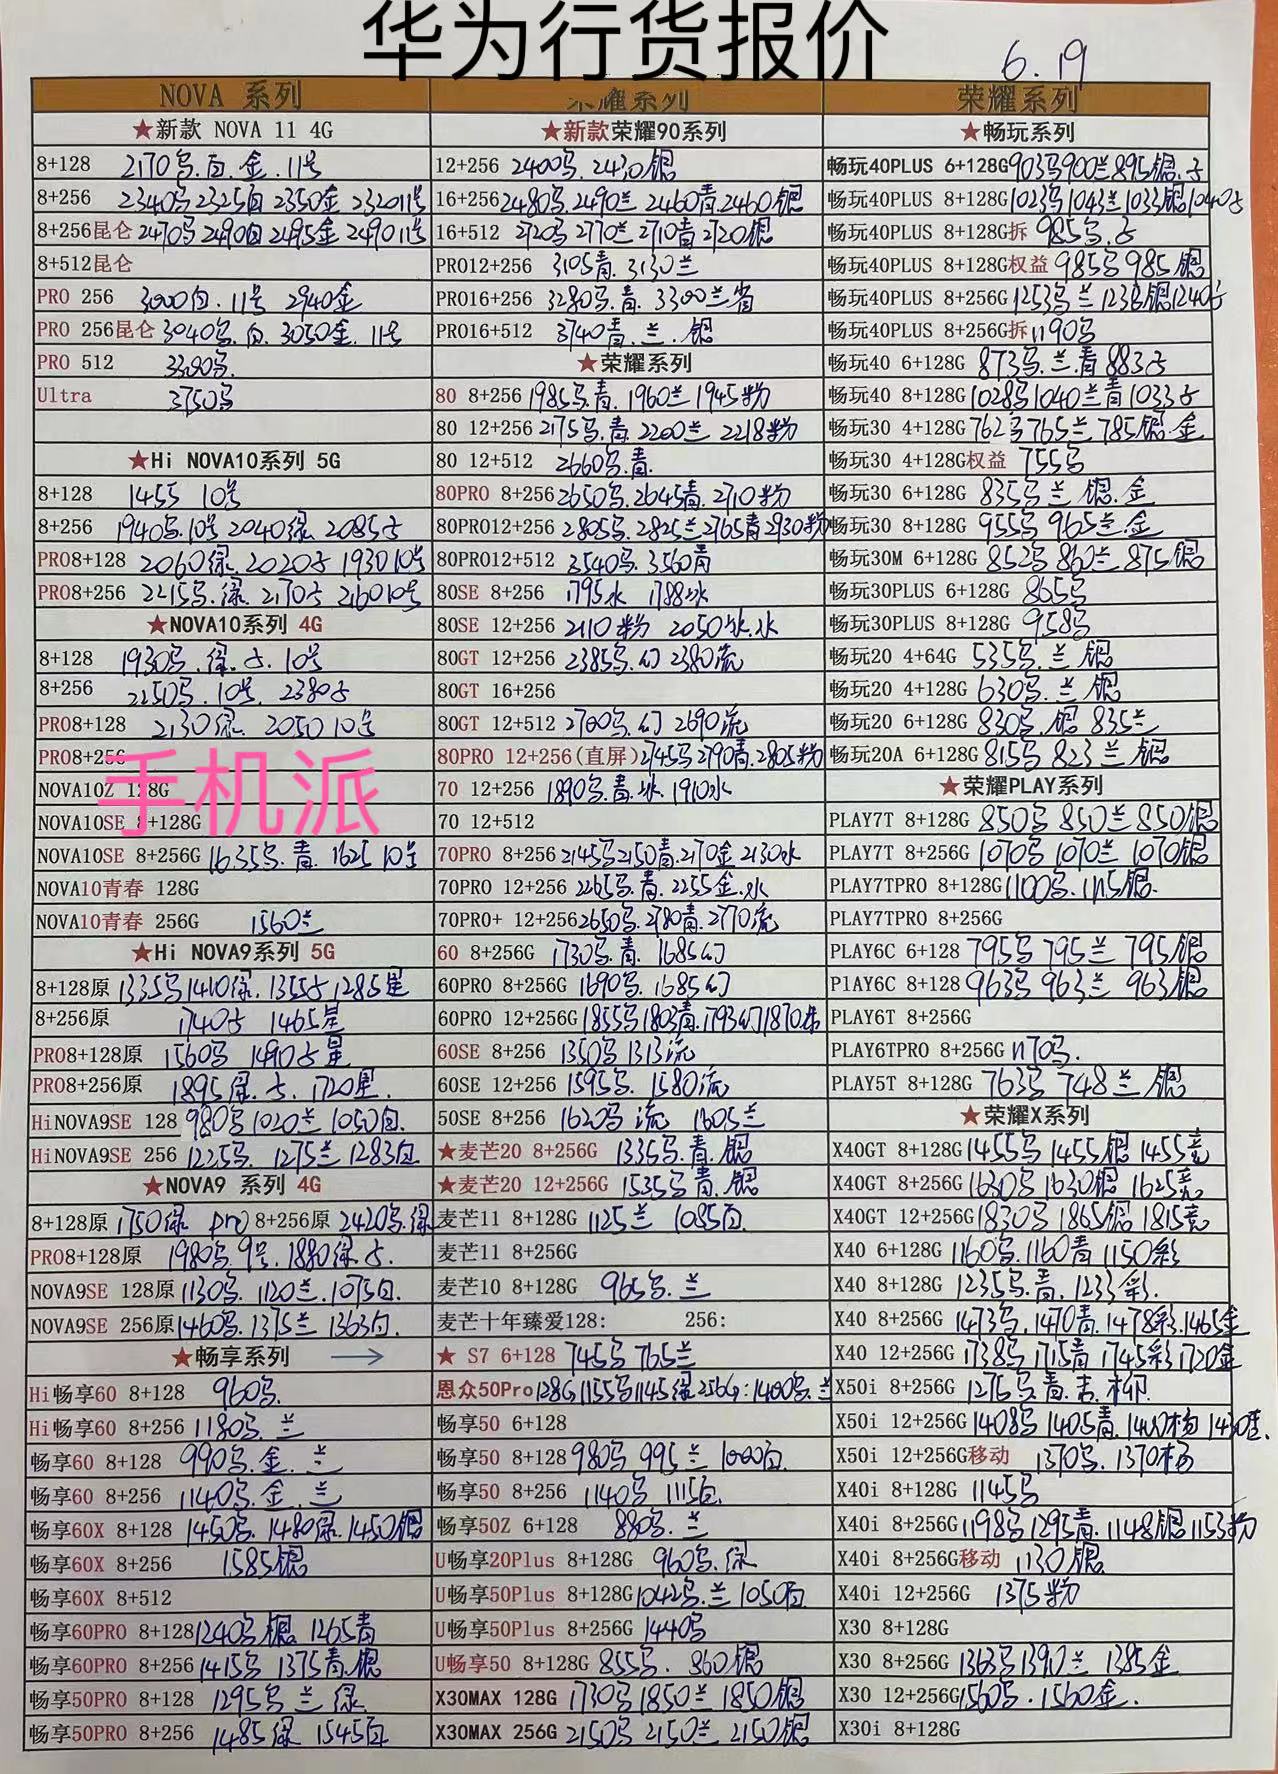 华为行货报价
6.19
NOVA 系列
★新款 NOVA 11 4G
8+128 2170乌.白.金.11号
8+256 2340乌2325白2350金 232011号
8+256昆仑 2470乌2490白2495金 249011号
8+512昆仑
PRO 256 3000白.11号 2940金
PRO 256昆仑 3040乌.白.3050金.11号
PRO 512 3380乌.
Ultra 3750乌
★Hi NOVA10系列 5G
8+128 1455 10号
8+256 1940乌.10号 2040绿 2085占
PRO8+128 2060绿.2020占 1930 10号
PRO8+256 2215乌.绿.2170占 2160 10号
★NOVA10系列 4G
8+128 1930乌.绿.占.10号
8+256 2250乌.10号.2380占
PRO8+128 2130绿.2050 10号
PRO8+256
手机派
NOVA10Z 128G
NOVA10SE 8+128G
NOVA10SE 8+256G 1635乌.青.1625 10号
NOVA10青春 128G
NOVA10青春 256G 1560兰
★Hi NOVA9系列 5G
8+128原 1335乌1410绿.1355占1285星
8+256原 1740占 1465星
PRO8+128原 1560乌 1490占星
PRO8+256原 1895绿.占.1720星.
HiNOVA9SE 128 980乌1020兰1050白.
HiNOVA9SE 256 1225乌. 1275兰1283白
★NOVA9 系列 4G
8+128原 1750绿 pro 8+256原 2420乌.绿
PRO8+128原 1980乌.9号.1880绿.占.
NOVA9SE 128原 1130乌. 1120兰.1075白.
NOVA9SE 256原 1460乌.1375兰 1363白.
★畅享系列 →
Hi畅享60 8+128 960乌.
Hi畅享60 8+256 1180乌.兰
畅享60 8+128 990乌.金.兰
畅享60 8+256 1140乌.金.兰
畅享60X 8+128 1450乌.1480绿.1450银
畅享60X 8+256 1585银
畅享60X 8+512
畅享60PRO 8+128 1240乌银 1265青
畅享60PRO 8+256 1415乌 1375青.银
畅享50PRO 8+128 1295乌兰绿
畅享50PRO 8+256 1485绿 1545白
荣耀系列
★新款荣耀90系列
12+256 2400乌.2430银
16+256 2480乌.2490兰 2460青.2460银
16+512 2720乌 2770兰2710青2720银
PRO12+256 3105青.3130兰
PRO16+256 3280乌.青.3300兰省
PRO16+512 3740青.兰.银
★荣耀系列
80 8+256 1985乌.青.1960兰 1945粉
80 12+256 2175乌.青.2200兰 2218粉
80 12+512 2660乌.青.
80PRO 8+256 2650乌.2645青.2710粉
80PRO12+256 2805乌.2825兰2765青2930粉
80PRO12+512 3540乌.3560青
80SE 8+256 1795水 1788冰
80SE 12+256 2110粉 2050冰.水
80GT 12+256 2385乌.幻 2380流
80GT 16+256
80GT 12+512 2700乌.幻 2690流
80PRO 12+256(直屏)2745乌2790青.2805粉
70 12+256 1890乌.青.冰.1910水
70 12+512
70PRO 8+256 2145乌2150青.2170金 2130水
70PRO 12+256 2265乌.青.2255金.水
70PRO+ 12+256 2650乌.2780青.2770流
60 8+256G 1730乌.青. 1685幻
60PRO 8+256G 1690乌.1685幻
60PRO 12+256G 1855乌1803青.1793幻1870
60SE 8+256 1350乌1313流
60SE 12+256 1595乌. 1580流
50SE 8+256 1620乌 流 1605兰
★麦芒20 8+256G 1335乌.青.银
★麦芒20 12+256G 1535乌青.银
麦芒11 8+128G 1125兰 1085白
麦芒11 8+256G
麦芒10 8+128G 965乌.兰
麦芒十年臻爱128: 256:
★ S7 6+128 745乌 765兰
恩众50Pro 128G1155乌1145绿256G:1400乌.兰
畅享50 6+128
畅享50 8+128 980乌 995兰1000白
畅享50 8+256 1140乌 1115白.
畅享50Z 6+128 880乌.兰
U畅享20Plus 8+128G 960乌.绿
U畅享50Plus 8+128G 1042乌.兰1050白
U畅享50Plus 8+256G 1440乌
U畅享50 8+128G 855乌. 860银
X30MAX 128G 1730乌1850兰1850银
X30MAX 256G 2150乌2150兰2150银
荣耀系列
★畅玩系列
畅玩40PLUS 6+128G 903乌900兰895银.占
畅玩40PLUS 8+128G 1023乌1043兰1033银1040占
畅玩40PLUS 8+128G拆 985乌.占
畅玩40PLUS 8+128G权益 985乌985银
畅玩40PLUS 8+256G 1253乌兰123银1240占
畅玩40PLUS 8+256G拆 1190乌
畅玩40 6+128G 873乌.兰.青 883占
畅玩40 8+128G 1028乌1040兰青1033占
畅玩30 4+128G 762乌765兰785银.金
畅玩30 4+128G权益 755乌
畅玩30 6+128G 835乌兰 银.金
畅玩30 8+128G 955乌 965兰金
畅玩30M 6+128G 852乌860兰 875银
畅玩30PLUS 6+128G 865乌
畅玩30PLUS 8+128G 958乌
畅玩20 4+64G 535乌.兰 银
畅玩20 4+128G 630乌.兰 银
畅玩20 6+128G 830乌.银 835兰
畅玩20A 6+128G 815乌 823兰 银
★荣耀PLAY系列
PLAY7T 8+128G 850乌 850兰 850银
PLAY7T 8+256G 1070乌 1070兰 1070银
PLAY7TPRO 8+128G 1100乌.1115银.
PLAY7TPRO 8+256G
PLAY6C 6+128 795乌 795兰 795银
PlAY6C 8+128 963乌 963兰 963银
PLAY6T 8+256G
PLAY6TPRO 8+256G 1170乌.
PLAY5T 8+128G 763乌 748兰.银
★荣耀X系列
X40GT 8+128G 1455乌1455银 1455竞
X40GT 8+256G 1630乌1630银 1625竞
X40GT 12+256G 1830乌 1865银 1815竞
X40 6+128G 1160乌.1160青1150彩
X40 8+128G 1235乌.青.1233彩.
X40 8+256G 1473乌.1470青.1478彩.1465金
X40 12+256G 1738乌1715青 1745彩1720金
X50i 8+256G 1276乌青.杏.柳
X50i 12+256G 1408乌1405青.1400杨
X50i 12+256G移动 1370乌.1370杨
X40i 8+128G 1145乌
X40i 8+256G 1198乌1295青.1148银1153粉
X40i 8+256G移动 1130银
X40i 12+256G 1375粉
X30 8+128G
X30 8+256G 1363乌1390兰 1385金
X30 12+256G 1560乌.1560金.
X30i 8+128G